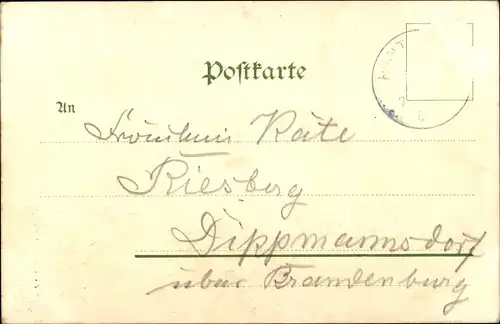 Postkarte
An
Fräulein Käte
Riesberg
Dippmannsdorf
über Brandenburg